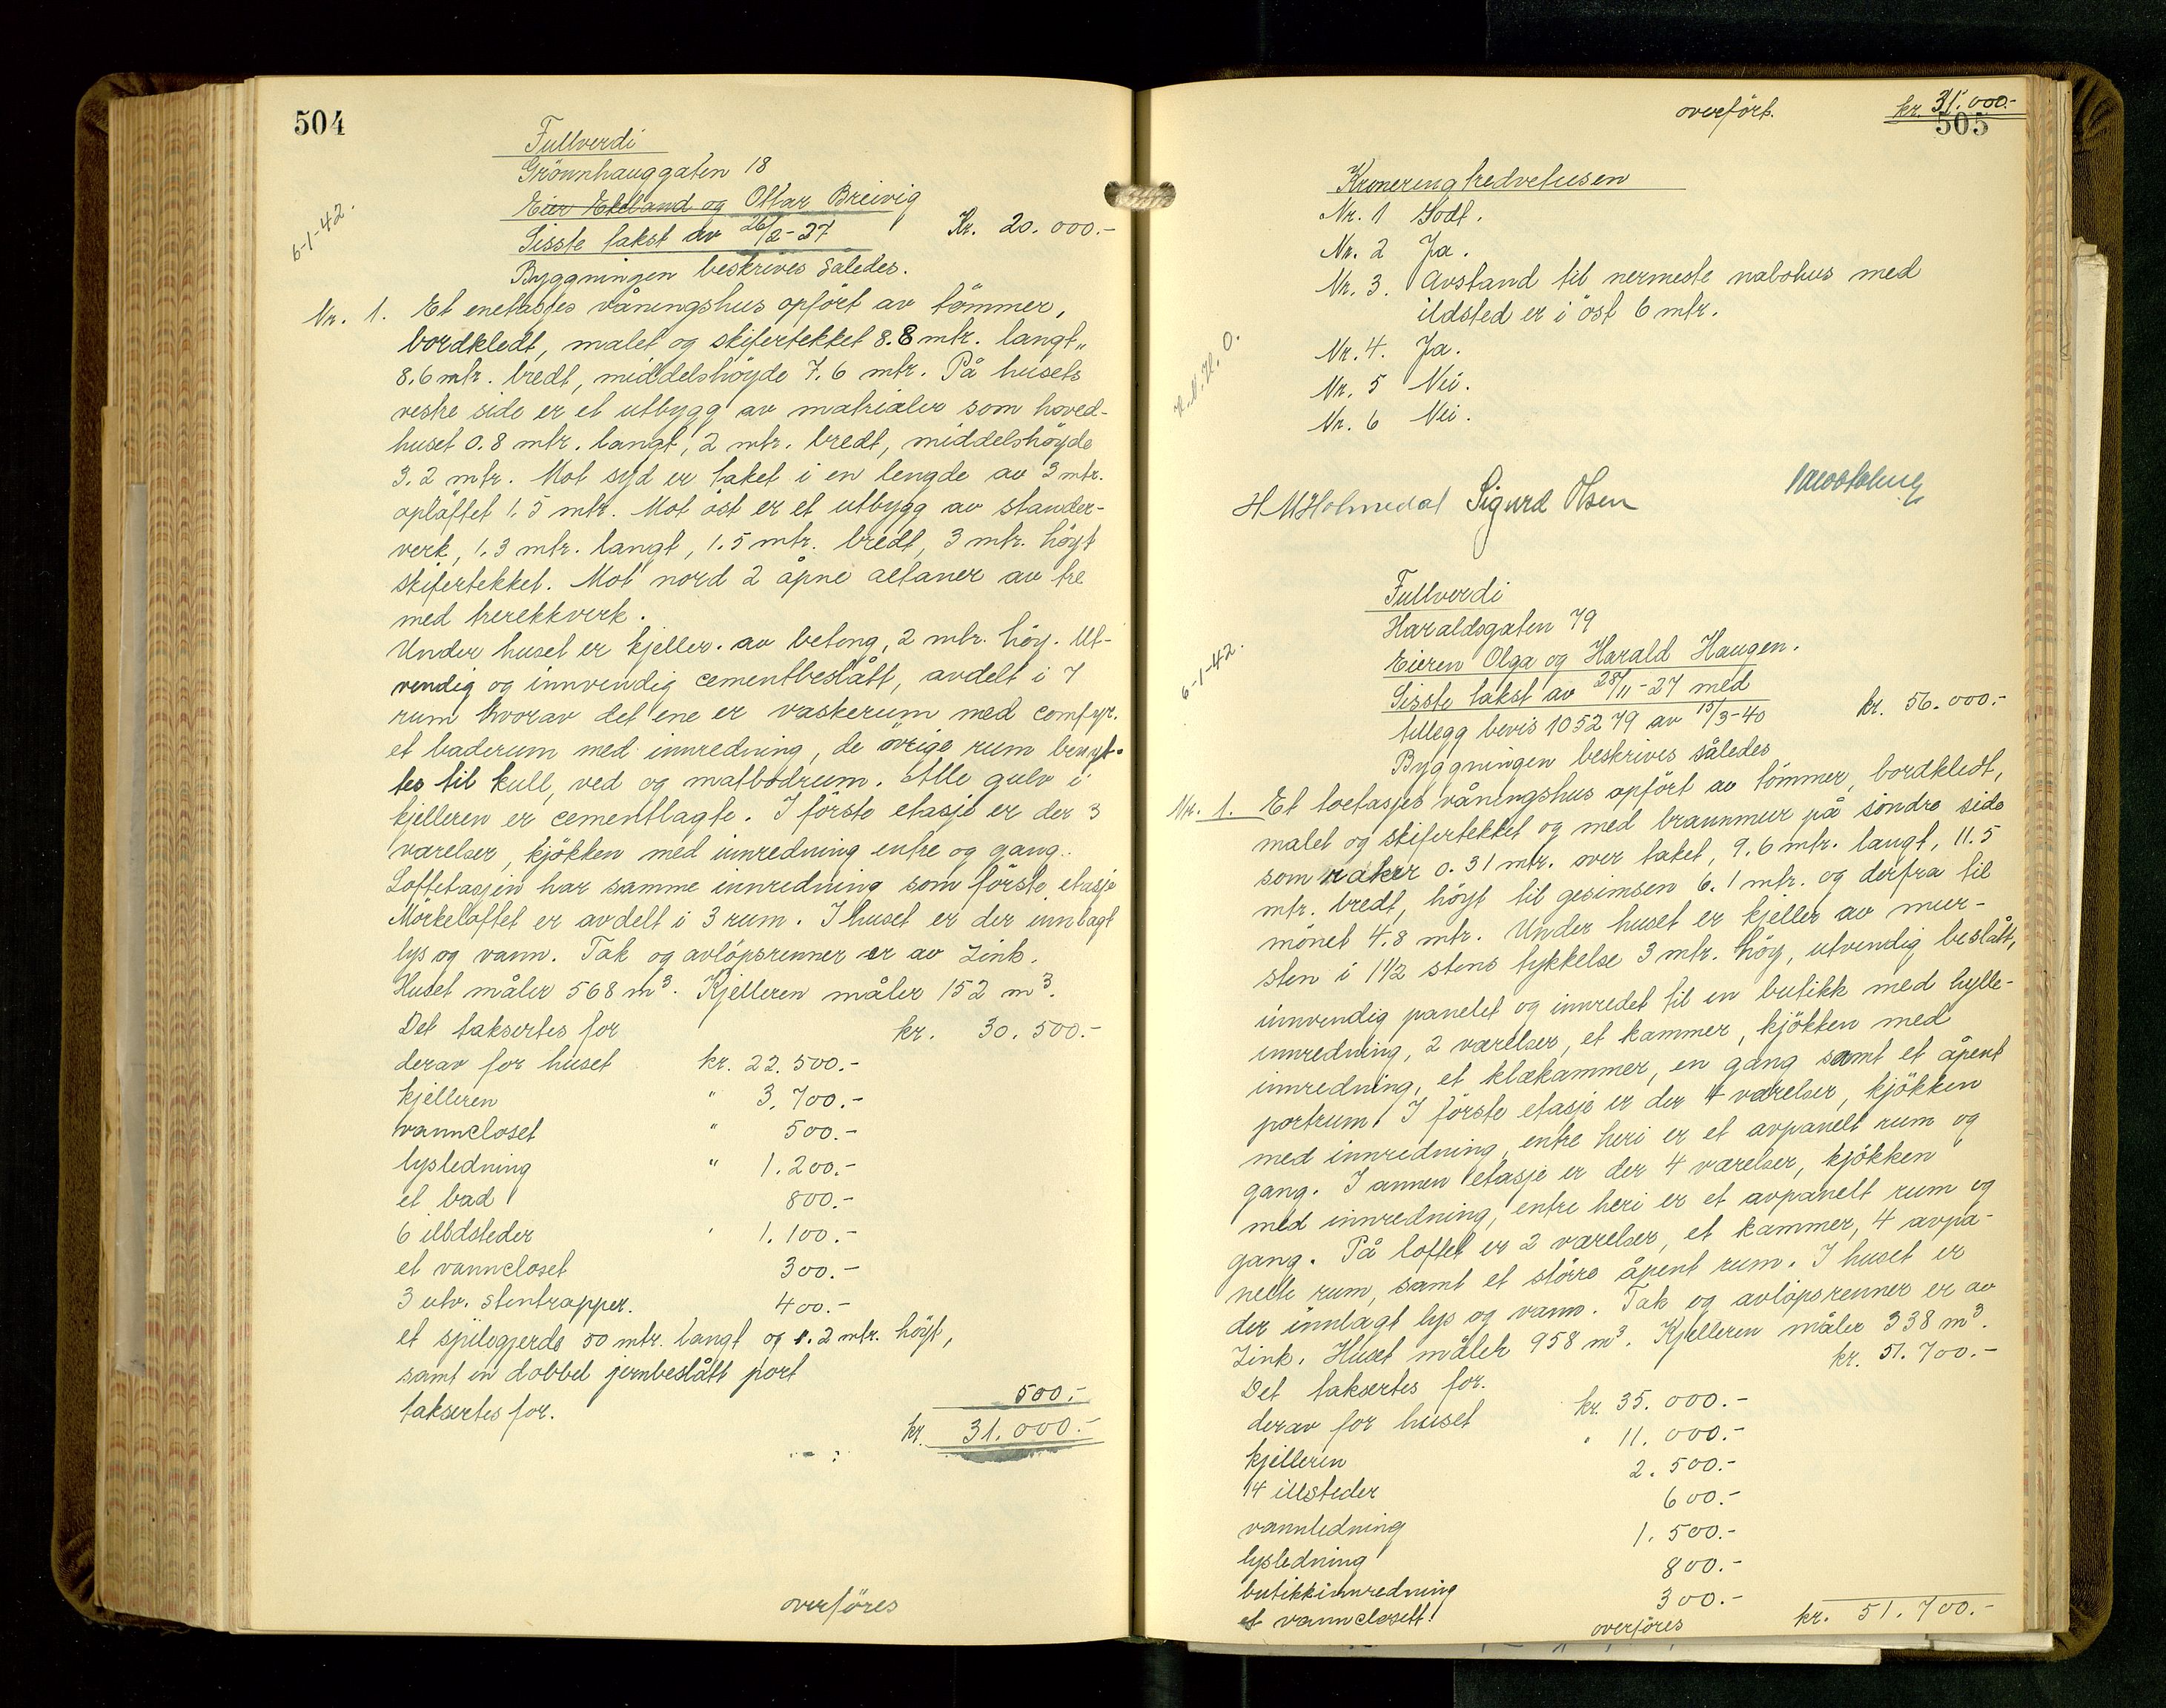 504
Fullverdi
Grönnhauggaten 18
Eier Ekeland og Ottar Breivig
6-1-42.
Sisste takst av 26/2-27 Kr. 20.000.-
Byggningen beskrives således.
Nr. 1. Et enetasjes våningshus opfört av tömmer,
bordkledt, malet og skifertekket 8.8 mtr. langt,,
8.6 mtr. bredt, middelshöyde 7.6 mtr. På husets
vestre side er et utbygg av matrialer som hoved-
huset 0.8 mtr. langt, 2 mtr. bredt, middelshöyde
3.2 mtr. Mot syd er taket i en lengde av 3 mtr.
oplöftet 1.5 mtr. Mot öst er et utbygg av stander-
verk, 1.3 mtr. langt, 1.5 mtr. bredt, 3 mtr. höyt
skifertekket. Mot nord 2 åpne altaner av tre
med trerekkverk.
Under huset er kjeller. av betong, 2 mtr. höy. Ut-
vendig og innvendig cementbeslått, avdelt i 7
rum hvorav det ene er vaskerum med comfyr.
et baderum med innredning, de övrige rum benyt-
tes til kull, ved og matbodrum. Alle gulv i
kjelleren er cementlagte. I förste etasje er der 3
værelser, kjökken med innredning entre og gang.
Loftetasjen har samme innredning som förste etasje
Mörkeloftet er avdelt i 3 rum. I huset er der innlagt
lys og vann. Tak og avlöpsrenner er av Zink.
Huset måler 568 m³. Kjelleren måler 152 m³.
Det taksertes for kr. 30.500.-
derav for huset kr. 22.500.-
kjelleren " 3.700.-
vanncloset " 500.-
lysledning " 1.200.-
et bad 800.-
6 illdsteder " 1.100.-
et vanncloset 300.-
3 utv. stentrapper. 400.-
et spilegjerde 50 mtr. langt og 1.2 mtr. höyt,
samt en dobbel jernbeslått port
taksertes for. 500.-
kr. 31.000.-
overföres
overfört. kr. 31.000.-
505
Kronering tredvetusen
Nr. 1 Godt.
Nr. 2 Ja.
Nr. 3. Avstand til nermeste nabohus med
ildsted er i öst 6 mtr.
Nr. 4. Ja.
Nr. 5 Nei.
Nr. 6 Nei.
H M Holmedal Sigurd Olsen
Fullverdi
Haraldsgaten 79
Eieren Olga og Harald Haugen.
6-1-42.
Sisste takst av 28/11-27 med
tillegg bevis 105279 av 15/3-40 kr. 56.000.-
Byggningen beskrives således
Nr. 1. Et toetasjes våningshus opfört av tömmer, bordkledt,
malet og skifertekket og med brannmur på söndre side
som raker 0.31 mtr. over taket, 9.6 mtr. langt, 11.5
mtr. bredt, höyt til gesimsen 6.1 mtr. og derfra til
mönet 4.8 mtr. Under huset er kjeller av mur-
sten i 1 1/2 stens tykkelse 3 mtr. höy, utvendig beslått,
innvendig panelet og innredet til en butikk med hylle-
innredning, 2 værelser, et kammer, kjökken med
innredning, et klækammer, en gang samt et åpent
portrum. I förste etasje er der 4 værelser, kjökken
med innredning, entre heri er et avpanelt rum og
gang. I annen etasje er der 4 værelser, kjökken
med innredning, entre heri er et avpanelt rum og
gang. På loftet er 2 værelser, et kammer, 4 avpa-
nelte rum, samt et större åpent rum. I huset er
der innlagt lys og vann. Tak og avlöpsrenner er av
Zink. Huset måler 958 m³. Kjelleren måler 338 m³.
Det taksertes for. kr. 51.700.-
derav for huset kr. 35.000.-
kjelleren " 11.000.-
14 illsteder 2.500.-
vannledning 600.-
lysledning 1.500.-
butikkinnredning 800.-
et vannclosett. 300.-
overföres kr. 51.700.-